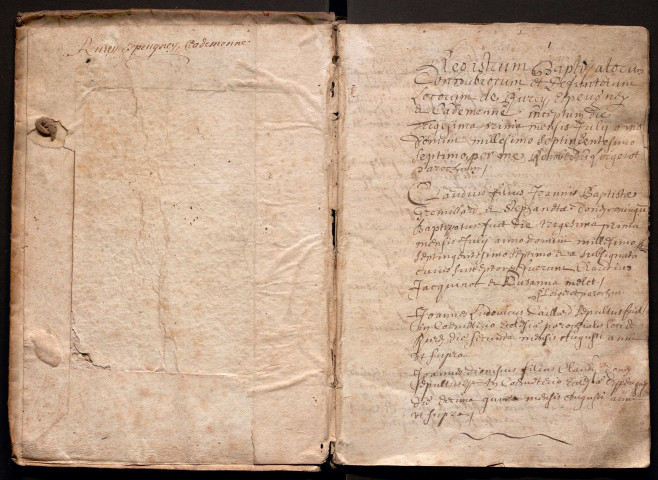 Rurey Epeugney Cademenne
1
Registrum Baptizatorum
Connubiorum et Defunctorum
Locorum de Rurey Epeugney
& Cademenne inceptum die
vigesima prima mensis Julij anno
Domini millesimo septingentesimo
septimo per me
parochum
Claudius filius Joannis Baptistæ
et
Baptizatus fuit die vigesima prima
mensis Julij anno domini millesimo
septingentesimo septimo & a subsignato
cuius susceptores fuerunt Claudius
Jacquinot et Susanna molet
Joannes Ludovicus Caillet sepultus fuit
in Cœmeterio ecclesiæ parochialis loci de
Rurey die secunda mensis Augusti anno
ut supra
Joannes dionisius filius Claudij
sepultus est in Cœmeterio ecclesiæ
die decima quinta mensis Augusti anno
ut supra